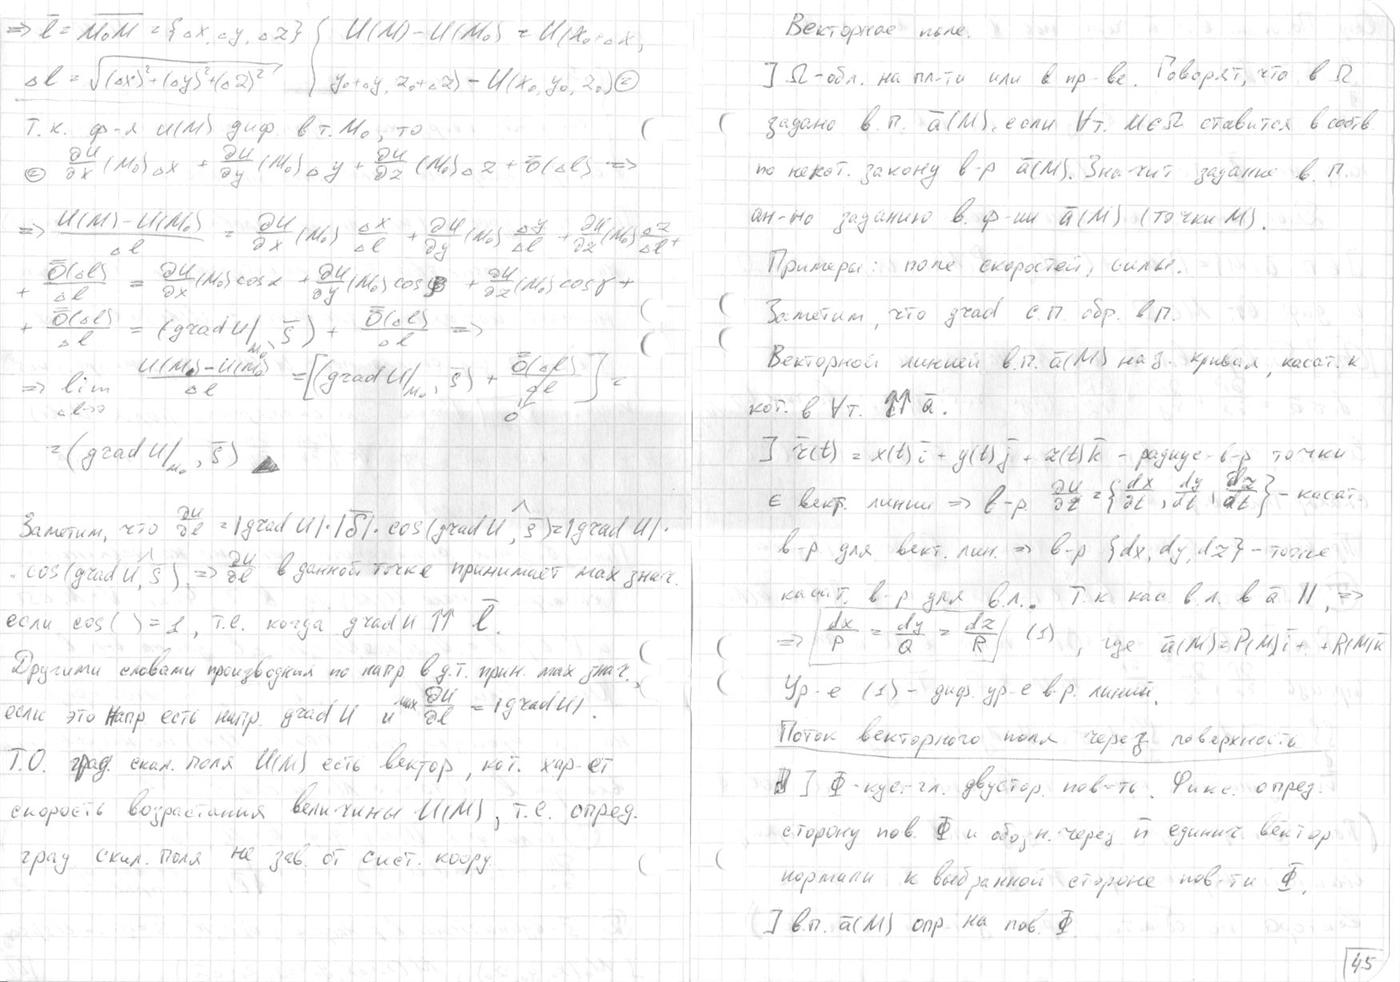 => l̅ = M₀M̅ = {Δx, Δy, Δz} { U(M) – U(M₀) = U(x₀+Δx,
Δl = √(Δx)²+(Δy)²+(Δz)² y₀+Δy, z₀+Δz) – U(x₀, y₀, z₀) ⊜
Т.к. ф-я u(M) диф в т. M₀, то
⊜ ∂U/∂x (M₀)Δx + ∂U/∂y (M₀)Δy + ∂U/∂z (M₀)Δz + o̅(Δl) =>
=> U(M) – U(M₀)/Δl = ∂U/∂x (M₀) Δx/Δl + ∂U/∂y (M₀) Δy/Δl + ∂U/∂z (M₀) Δz/Δl +
+ o̅(Δl)/Δl = ∂U/∂x (M₀) cos α + ∂U/∂y (M₀) cos β + ∂U/∂z (M₀) cos γ +
+ o̅(Δl)/Δl = (grad U/M₀, s̅) + o̅(Δl)/Δl =>
=> lim Δl→0 U(M) – U(M₀)/Δl = [(grad U/M₀, s̅) + o̅(Δl)/Δl ↓ 0] =
= (grad U/M₀, s̅)
Заметим, что ∂U/∂l = |grad U|·|s̅|· cos(grad U,^ s̅) = |grad U|·
· cos(grad U,^ s̅) => ∂U/∂l в данной точке принимает max знач.
если cos( ) = 1, т.е. когда grad U ↑↑ l̅.
Другими словами производная по напр в д.т. прин. max знач.,
если это напр есть напр. grad U и max ∂U/∂l = |grad U|.
Т.О. град. скал. поля U(M) есть вектор, кот. хар-ет
скорость возрастания величины U(M), т.е. опред.
град скал. поля не зав. от сист. коорд.
Векторное поле.
] Ω-обл. на пл-ти или в пр-ве. Говорят, что в Ω
задано в.п. a̅(M), если ∀т. M∈Ω ставится в соотв
по некот. закону в-р a̅(M). Значит задание в.п.
ан-но заданию в. ф-ии a̅(M) (точки M).
Примеры: поле скоростей, силы.
Заметим, что grad с.п. обр. в.п.
Векторной линией в.п. a̅(M) наз. кривая, касат. к
кот. в ∀т. ↑↑ a̅.
] r̅(t) = x(t)i̅ + y(t)j̅ + z(t)k̅ – радиус-в-р точки
∈ вект. линии => в-р {dx/dt, dy/dt, dz/dt} – касат.
в-р для вект. лин. => в-р {dx, dy, dz} – тоже
касат. в-р для в.л. Т.к кас в.л. в a̅ ||, =>
=> dx/P = dy/Q = dz/R (1), где a̅(M) = P(M)i̅ + + R(M)k̅
Ур-е (1) – диф. ур-е в-р. линий.
Поток векторного поля через поверхность
] Ф-кус-гл. двустор. пов-ть. Фикс. опред.
сторону пов. Ф и обозн. через n̅ единич. вектор
нормали к выбранной стороне пов-ти Ф.
] в.п. a̅(M) опр. на пов. Ф
45